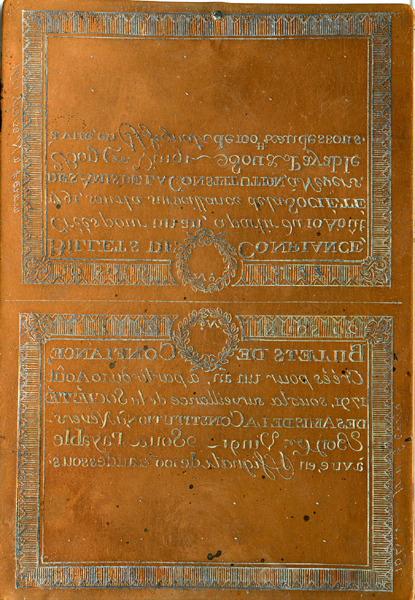 BILLETS DE CONFIANCE
Créés pour un an, à partir du 10 Août
1791, sous la surveillance de la SOCIÉTÉ
DES AMIS DE LA CONSTITUTION, à Nevers
Bon de Vingt Sous Payable
à vue en Assignats de 100# & au dessous.
BILLETS DE CONFIANCE
Créés pour un an, à partir du 10 Août
1791, sous la surveillance de la SOCIÉTÉ
DES AMIS DE LA CONSTITUTION, à Nevers.
Bon de Vingt Sous Payable
à vue en Assignats de 100# & au dessous.